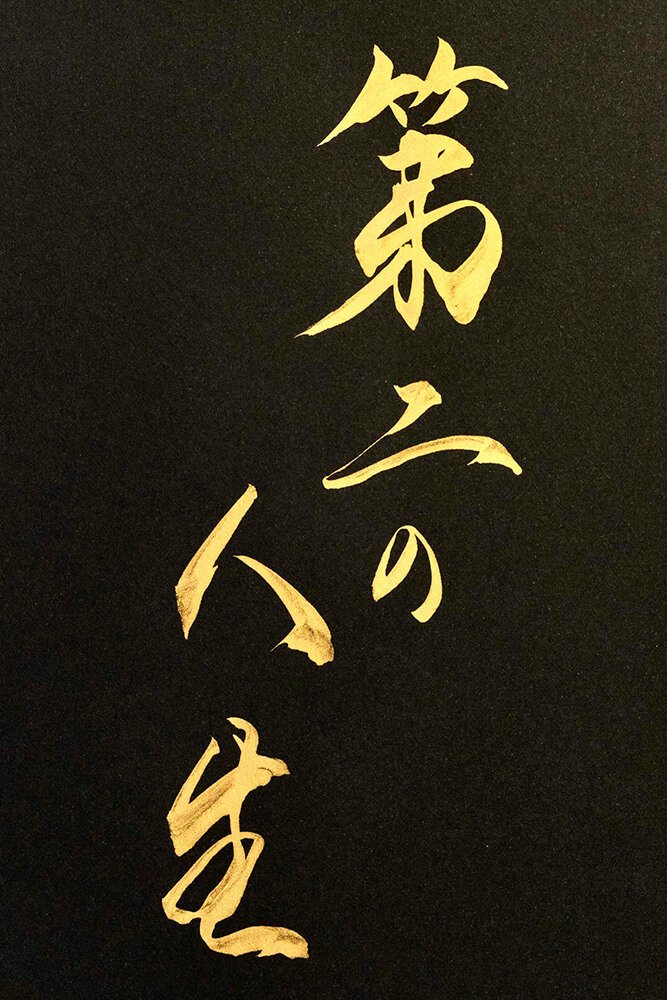 第二の
人生